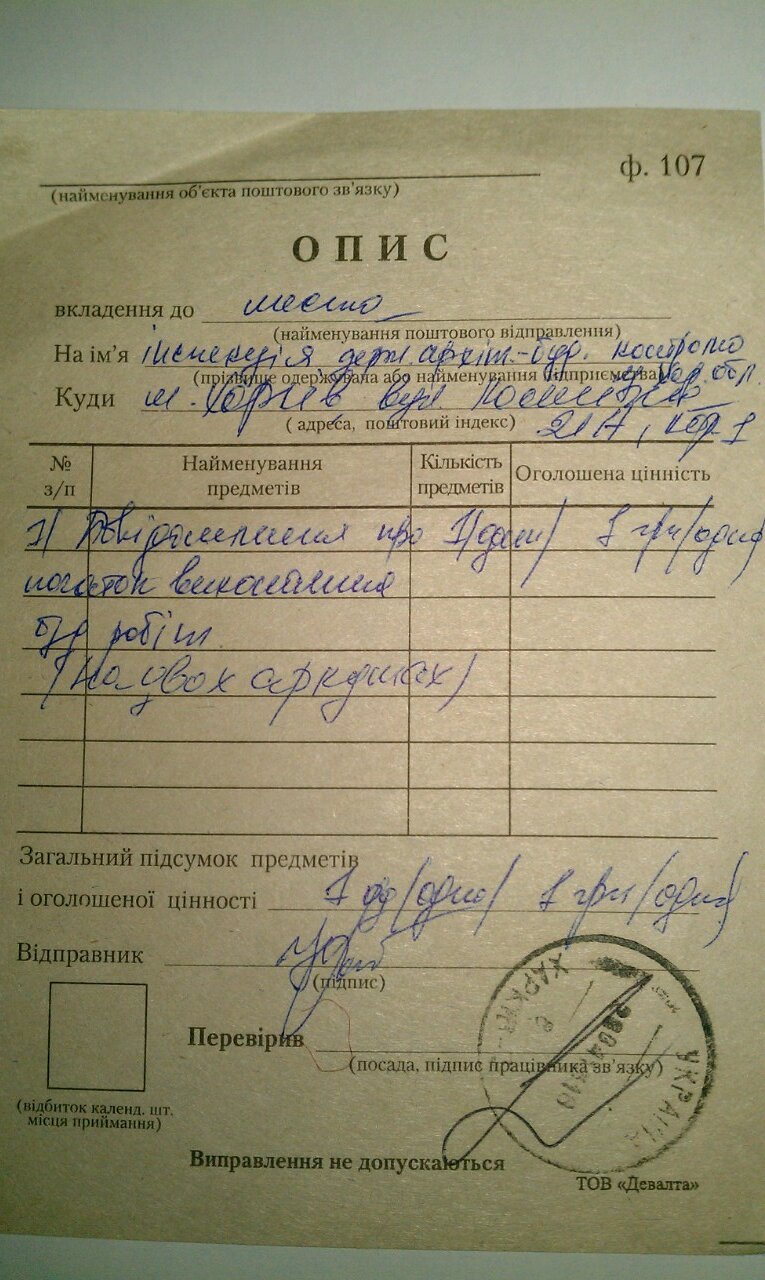 ф. 107
(найменування об'єкта поштового зв'язку)
ОПИС
вкладення до
(найменування поштового відправлення)
На ім'я інспекція держ. архіт.-буд. контролю
(прізвище одержувача або найменування підприємства)
Куди м. Харків вул.
(адреса, поштовий індекс)
№ з/п Найменування предметів Кількість предметів Оголошена цінність
1/ Повідомлення про 1/один/ 1 грн/одна
початок виконання
буд робіт
/на двох аркушах/
Загальний підсумок предметів
і оголошеної цінності 1 од/один/ 1 грн/одна/
Відправник
(підпис)
Перевірив
(посада, підпис працівника зв'язку)
(відбиток календ. шт. місця приймання)
УКРАЇНА
ХАРКІВ
Виправлення не допускаються
ТОВ «Девалта»